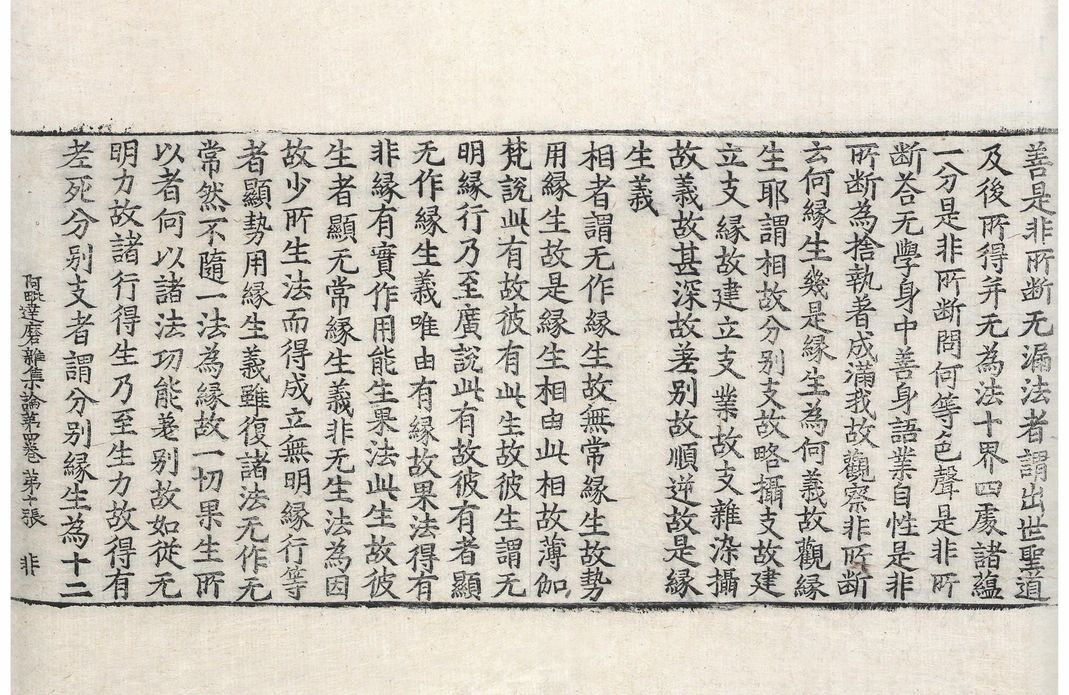 善是非所断无漏法者謂出世聖道
及後所得并无為法十界四處諸蘊
一分是非所断問何等色聲是非所
断荅无學身中善身語業自性是非
所断為捨執著成滿我故觀察非所断
云何緣生幾是緣生為何義故觀緣
生耶謂相故分別支故略攝支故建
立支緣故建立支業故支雜染攝
故義故甚深故差別故順逆故是緣
生義
相者謂无作緣生故無常緣生故勢
用緣生故是緣生相由此相故薄伽
梵說此有故彼有此生故彼生謂无
明緣行乃至廣說此有故彼有者顯
无作緣生義唯由有緣故果法得有
非緣有實作用能生果法此生故彼
生者顯无常緣生義非无生法為因
故少所生法而得成立無明緣行等
者顯勢用緣生義雖復諸法无作无
常然不隨一法為緣故一切果生所
以者何以諸法功能差別故如從无
明力故諸行得生乃至生力故得有
老死分別支者謂分別緣生為十二
阿毗達磨雜集論第四卷 第十張 非